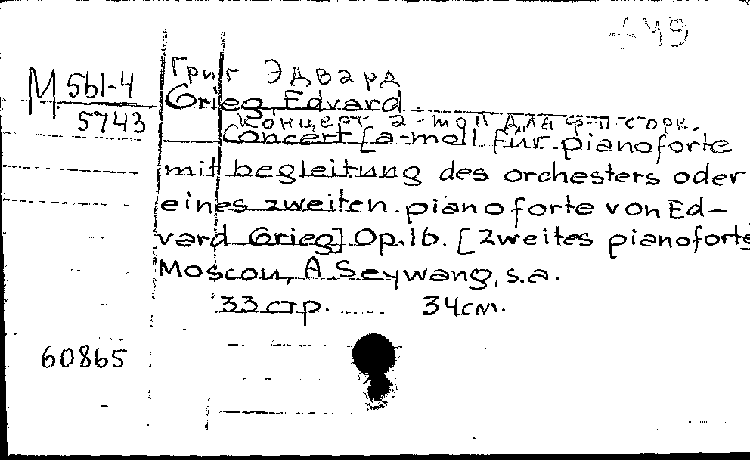 449
Григ Эдвард
М 561-4
5743
Grieg, Edvard
Концерт a-moll для ф-п с орк.
Concert [a-moll für pianoforte
mit begleitung des orchesters oder
eines zweiten pianoforte von Ed-
vard Grieg] Op.16. [Zweites pianoforte
Moscou, A Seywang, s.a.
33 стр. 34см.
60865